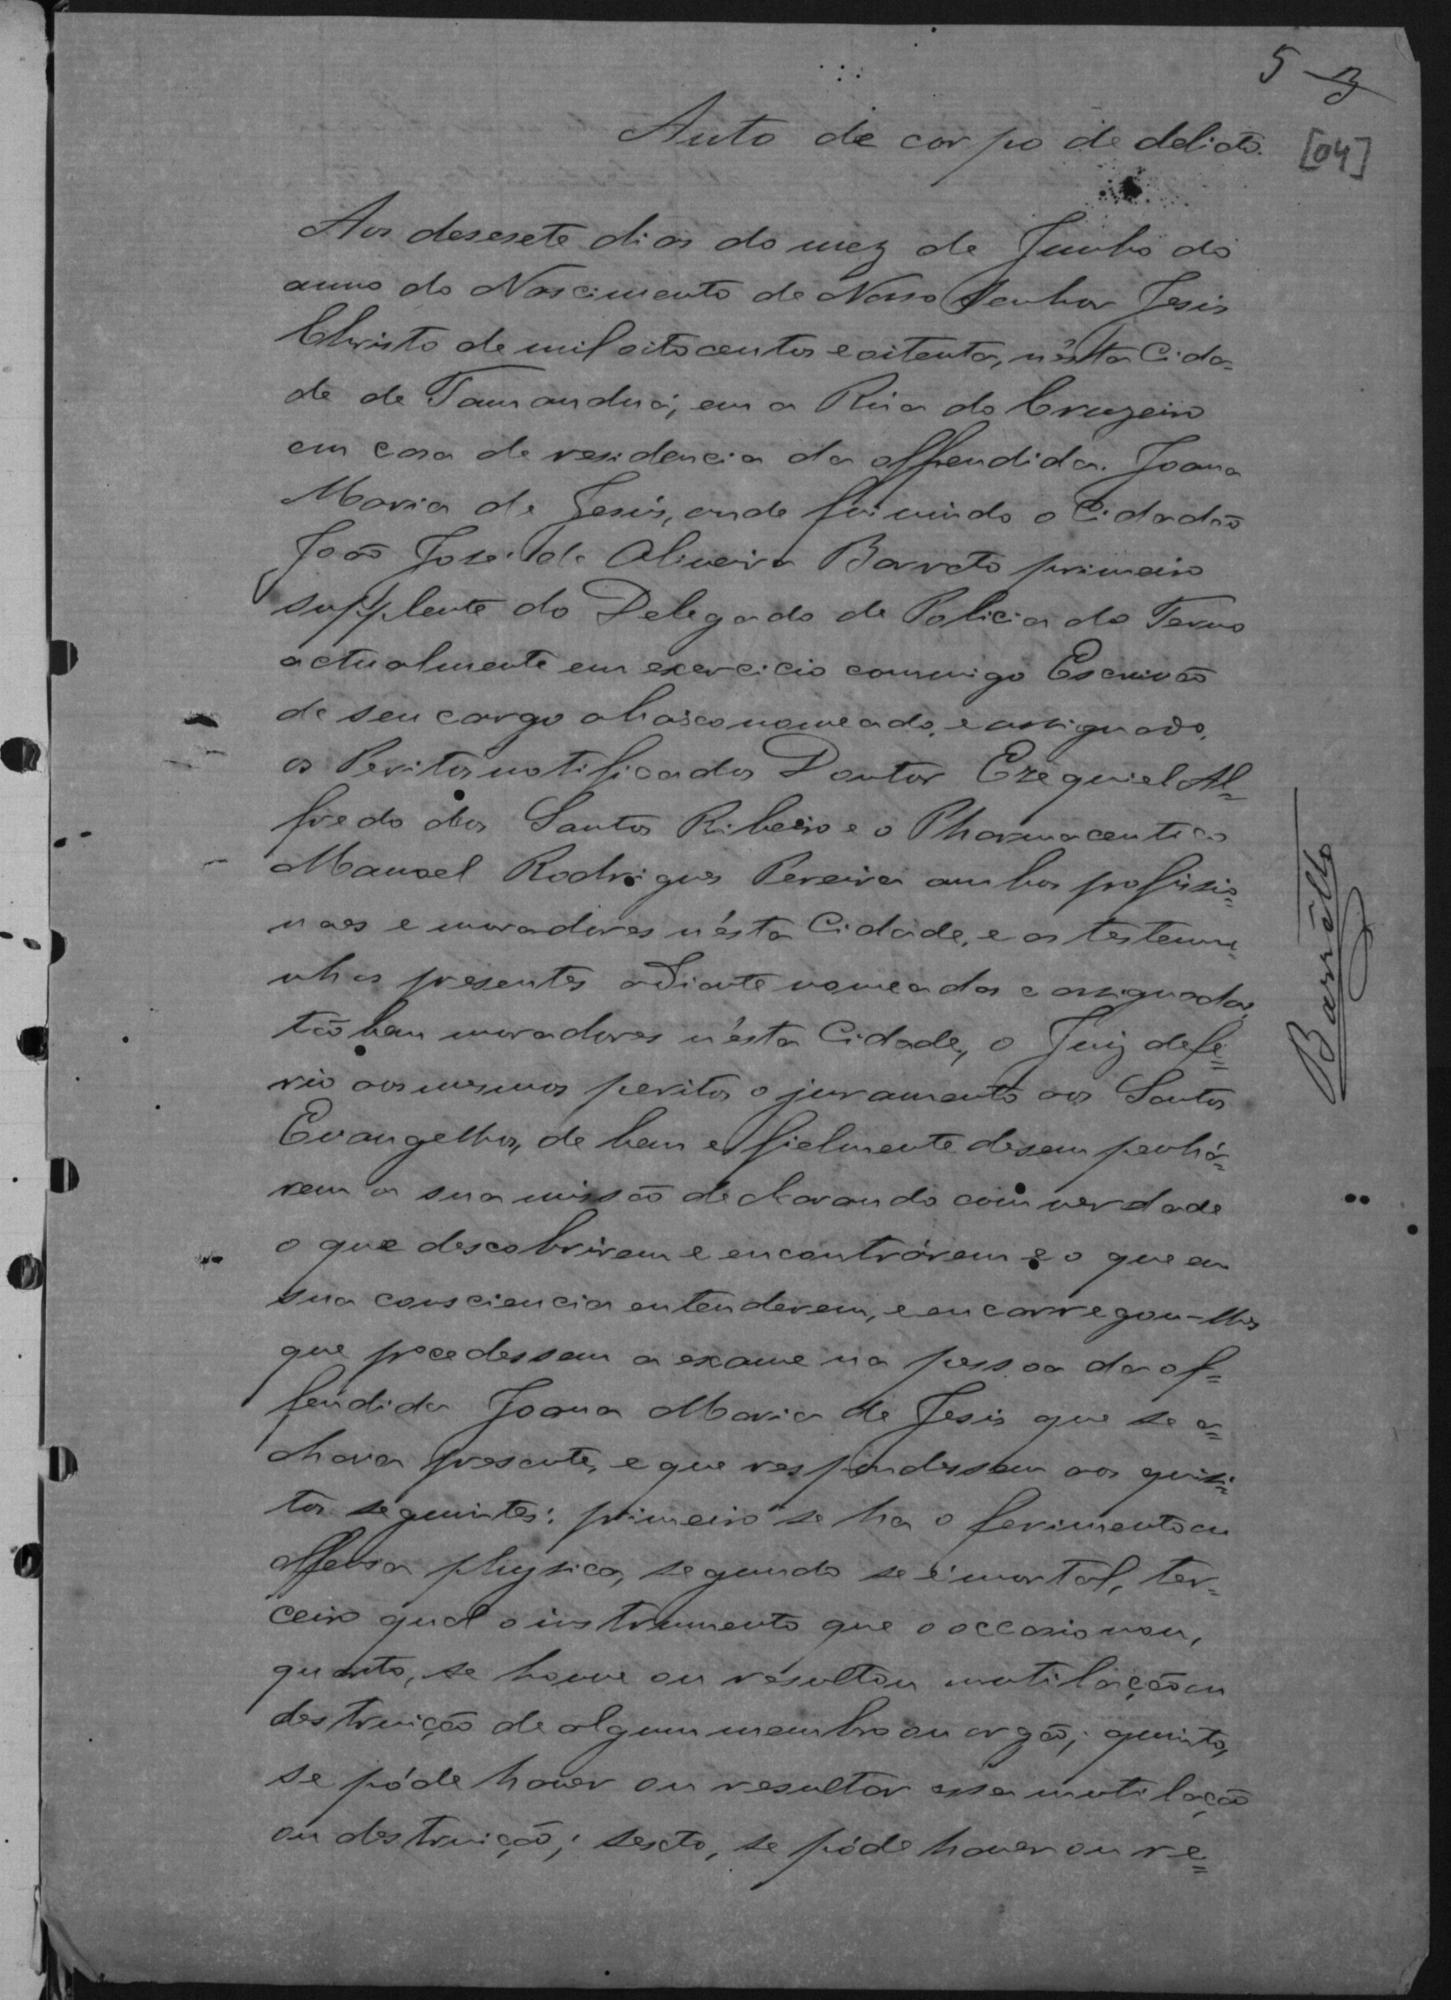 5 3
[04]
Auto de corpo de delicto.
Aos desesete dias do mez de Junho do
anno do Nascimento de Nosso Senhor Jesus
Christo de mil oitocentos e oitenta, n'ésta Cida-
de de Tamanduá, em a Rua do Cruzeiro
em casa de residencia da offendida. Joana
Maria de Jesús, onde foi vindo o Cidadão
João José de Oliveira Barreto primeiro
supplente do Delegado de Policia do Termo
actualmente em exercicio commigo Escrivão
de seu cargo abaixo nomeado, e assignado,
os Peritos notificados Doutor Ezequiel Al=
fredo dos Santos Ribeiro e o Pharmaceutico
Manoel Rodrigues Pereira ambos profissio=
naes e moradores n'ésta Cidade, e as testemu=
nhas presentes adiante nomeadas e assignadas,
tãobem moradores n'ésta Cidade, o Juiz defe=
rio aos mesmos peritos o juramento aos Santos
Evangelhos, de bem e fielmente desempenhá=
rem a sua missão declarando com verdade
o que descobrirem e encontrárem e o que em
sua consciencia entenderem, e encarregou-lhes
que procedessem a exame na pessoa da of=
fendida Joana Maria de Jesus que se a=
chava presente, e que respondessem aos quisi=
tos seguintes: primeiro se ha o ferimento ou
offensa physica, segundo se é mortal, ter=
ceiro qual o instrumento que o occasionou,
quarto, se houve ou resultou mutilação ou
destruição de algum membro ou orgão; quinto,
se póde haver ou resultar essa mutilação
ou destruição; sexto, se póde haver ou re=
Barrêtto